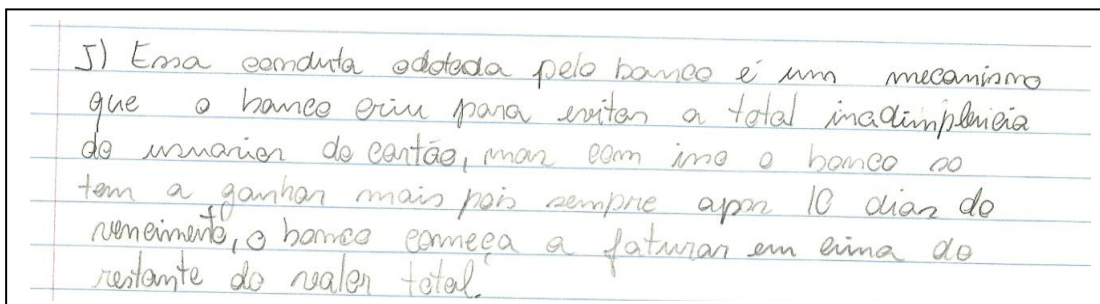 5) Essa conduta adotada pelo banco é um mecanismo
que o banco criu para evitar a total inadimplência
do usuarior do cartão, mas com isso o banco so
tem a ganhar mais pois sempre apos 10 dias do
vencimento, o banco começa a faturar em cima do
restante do valor total.